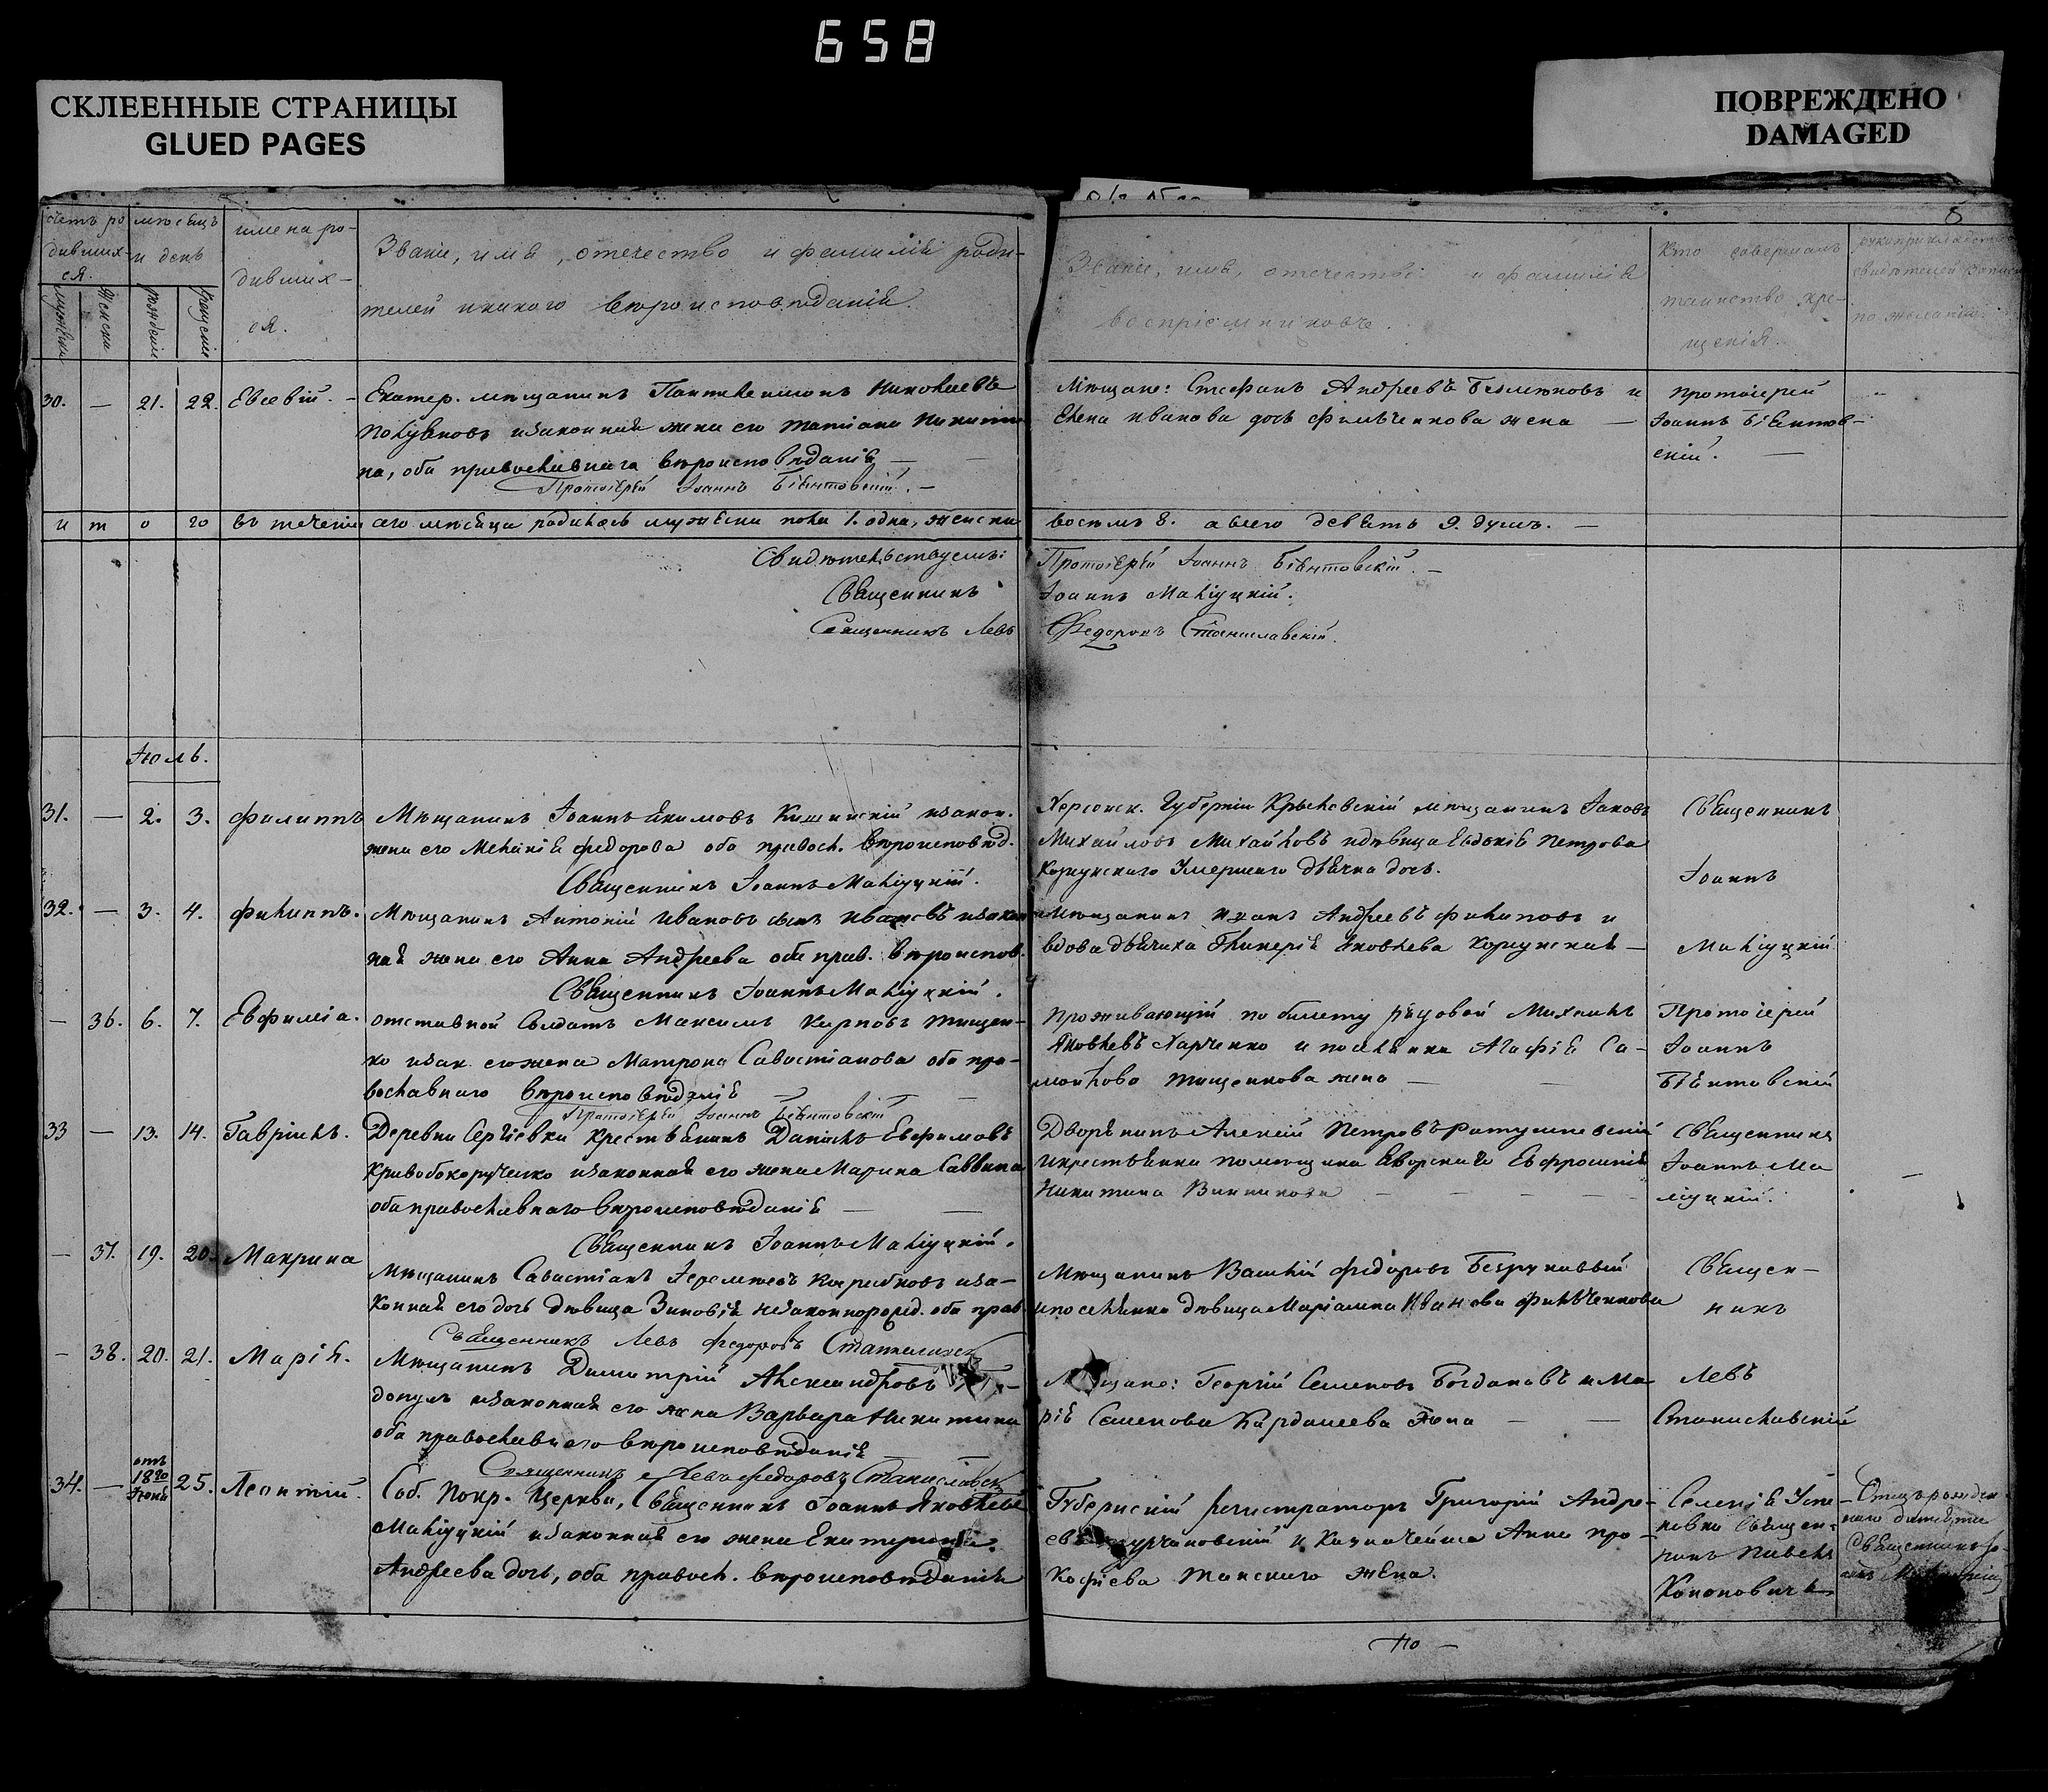 658
СКЛЕЕННЫЕ СТРАНИЦЫ
GLUED PAGES
ПОВРЕЖДЕНО
DAMAGED
8
счетъ ро дившихся.
мужеска женска
мѣсяцъ и день
рожденія крещенія
имена родившихся.
Званіе, имя, отечество и фамилія роди-
телей и какого вѣроисповѣданія.
Званіе, имя, отечество и фамилія
воспріемниковъ.
Кто совершалъ
таинство кре-
щенія.
рукоприкладство
свидѣтелей записи
по желанію.
30. — 21. 22. Евсевій. – Екатер. мѣщанинъ Пантелеимонъ Николаевъ
изаконная жена его Татіана Никити
на, оба православнаго вѣроисповѣданія —
Протоіерей Іоаннъ
Мѣщане: Стефанъ Андреевъ и
Елена Иванова дочь Филѣченкова жена —
Протоіерей
Іоаннъ
скій. —
и т о го въ теченіи сего мѣсяца родилось мужеска пола 1. одна, женска
восемь 8. а всего девять 9. душъ. —
Свидѣтельствуемъ: Протоіерей Іоаннъ
Священникъ Іоаннъ Маліуцкій.
Священникъ Левъ Федоровъ Станиславскій.
Іюль.
31. — 2. 3. Филиппъ Мѣщанинъ Іоаннъ Акимовъ изакон.
жена его Меланія Федорова оба правосл. вѣроисповѣд.
Священникъ Іоаннъ Маліуцкій.
Херсонск. Губерніи Крыловскій мѣщанинъ Іаковъ
Михайловъ Михайловъ идѣвица Евдокія Петрова
Коржунскаго Умершаго дьячка дочь.
Священникъ
Іоаннъ
Маліуцкій
32. — 3. 4. Филиппъ. Мѣщанинъ Антоній Ивановъ сынъ Ивановъ изакон
ная жена его Анна Андреева оба прав. вѣроиспов.
Священникъ Іоаннъ Маліуцкій.
мѣщанинъ Иванъ Андреевъ Филиповъ и
вдова дьячиха Гликерія Яковлева Коржунская —
— 36. 6. 7. Евфиміа. отставной Солдатъ Максимъ Карповъ Тищен-
ко изак. его жена Матрона Савостіанова оба пра-
вославнаго вѣроисповѣданія —
Протоіерей Іоаннъ
Проживающій по билету рядовой Михаилъ
Яковлевъ Харченко и поселянка Агафія Са-
мойлова Тищенкова жена —
Протоіерей
Іоаннъ
33 — 13. 14. Гавріилъ. Деревни Сергіевки крестьянинъ Даніилъ Евфимовъ
изаконная его жена Марина Саввина
оба православнаго вѣроисповѣданія —
Священникъ Іоаннъ Маліуцкій.
Дворянинъ Алексій Петровъ
икрестьянка помѣщика Яворскаго Евфросинія
Никитина Винникова —
Священникъ
Іоаннъ Ма
ліуцкій.
— 37. 19. 20. Макрина Мѣщанинъ Савастіанъ Іеремѣевъ иза-
конная его дочь дѣвица Зиновія незаконнорожд. оба прав.
Священникъ Левъ Федоровъ Станиславск
Мѣщанинъ Василій Федоровъ Безрукавый
ипоселянка дѣвица Маріамна Иванова Филѣченкова
Священ-
никъ
– 38. 20. 21. Марія. Мѣщанинъ Димитрій Александровъ
изаконная его жена Варвара Никитина
оба православнаго вѣроисповѣданія —
Священникъ Левъ Федоровъ Станиславск
Мѣщане: Георгій Семеновъ Богдановъ и Ма-
рія Семенова Кардашева жена —
Левъ
Станиславскій
34. — 25. Леонтій. Соб. Покр. Церкви, Священникъ Іоаннъ Яковлевъ
Маліуцкій изаконная его жена Екатерина
Андреева дочь, оба правосл. вѣроисповѣданія
Губернскій регистраторъ Григорій Андре-
евъ и Казначейша Анна Про-
кофіева Танскаго жена.
Селенія Успе-
новки Священ-
никъ Павелъ
Кононовичъ
Отецъ рожден
наго дитяти
Священникъ Іо-